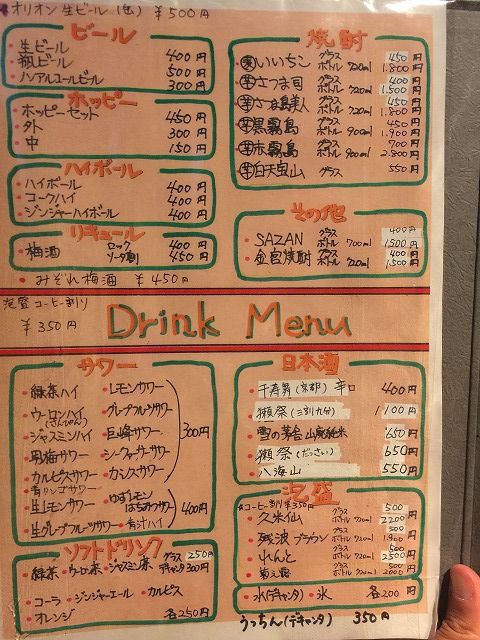 オリオン生ビール(缶) ¥500円
ビール
・生ビール 400円
・瓶ビール 500円
・ノンアルコールビール 300円
ホッピー
・ホッピーセット 450円
・外 300円
・中 150円
ハイボール
・ハイボール 400円
・コークハイ 400円
・ジンジャーハイボール 400円
リキュール
・梅酒 ロック 400円
ソーダ割 450円
・みぞれ梅酒 ¥450円
泡盛コーヒー割り
¥350円
焼酎
麦 いいちこ グラス 450円
ボトル 720ml 1.800円
芋 さつま司 グラス 400円
ボトル 720ml 1.500円
芋 さつま島美人 グラス 450円
ボトル 720ml 1.800円
芋 黒霧島 グラス 450円
ボトル 900ml 1.900円
芋 赤霧島 グラス 700円
ボトル 900ml 2.800円
芋 白天宝山 グラス 550円
その他
・SAZAN グラス 400円
ボトル 700ml 1500円
・金宮焼酎 グラス 400円
ボトル 720ml 1500円
Drink Menu
サワー
・緑茶ハイ
・ウーロンハイ
(さんぴん)
・ジャスミンハイ
・男梅サワー
・カルピスサワー
・青リンゴサワー
・レモンサワー
・グレープフルーツサワー
・巨峰サワー
・シークァーサーサワー
・カシスサワー
300円
・生レモンサワー
・生グレープフルーツサワー
・ゆずレモン
はちみつサワー
・青汁ハイ
400円
ソフトドリンク
・緑茶 ・ウーロン茶 ・ジャスミン茶 グラス 250円
デキャンタ 300円
・コーラ ・ジンジャーエール ・カルピス
・オレンジ 各250円
日本酒
・千寿男(京都) 辛口 400円
・獺祭(三割九分) 1100円
・雪の茅舎 山廃純米 650円
・獺祭(だっさい) 650円
・八海山 550円
泡盛
★コーヒー割り¥350円
・久米仙 グラス 500
ボトル 720ml 2200円
・残波ブラウン グラス 500
ボトル 720ml 1.900円
・れんと グラス 500
ボトル 720ml 2500円
・菊之露 グラス 500
ボトル 720ml 2000円
・水(デキャンタ) ・氷 各200円
うっちん(デキャンタ) 350円